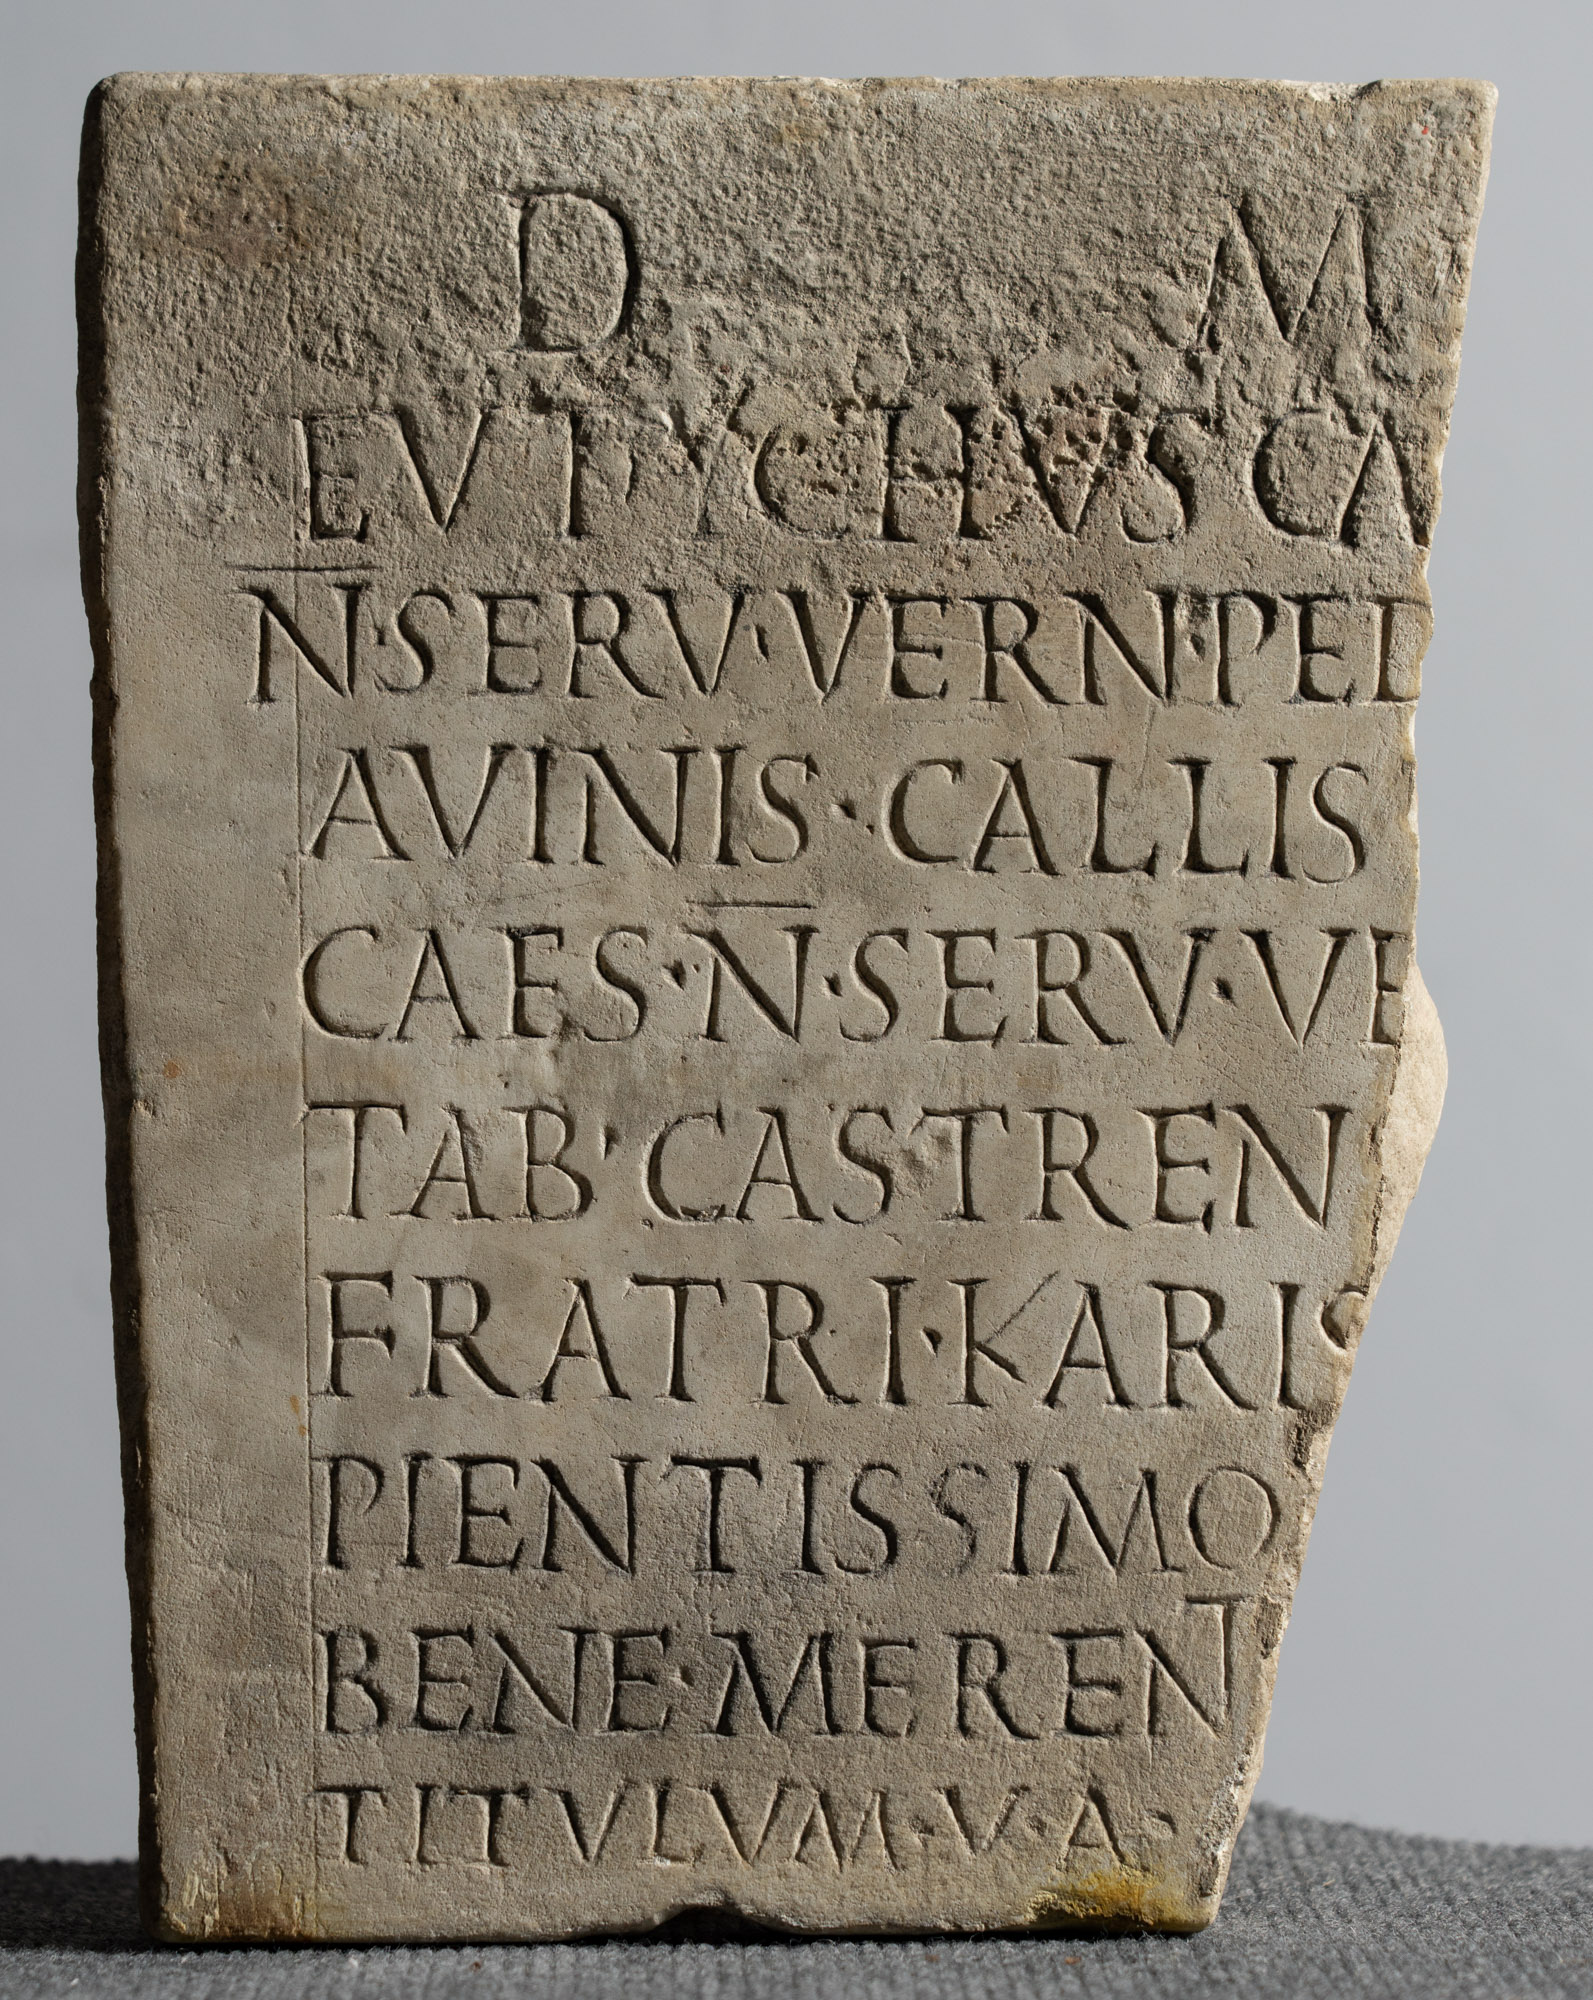 D M
EVTYCHVS CA
N̅·SERV·VERN·PED
AVINIS·CALLIS
CAES·N̅·SERV·VE
TAB·CASTREN
FRATRI·KARIS
PIENTISSIMO
BENE·MERENT
TITVLVM·V·A·